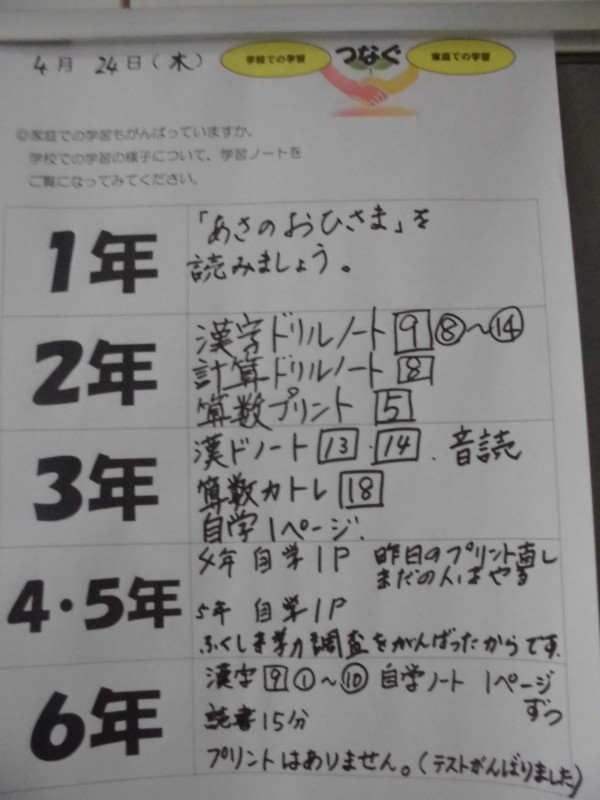 4月 24日(木)
学校での学習 つなぐ 家庭での学習
◎家庭での学習もがんばっていますか。
学校での学習の様子について、学習ノートを
ご覧になってみてください。
1年
「あさのおひさま」を
読みましょう。
2年
漢字ドリルノート 9 ⑧～⑭
計算ドリルノート 8
算数プリント 5
3年
漢ドノート 13・14、音読
算数カトレ 18
自学1ページ.
4・5年
4年 自学1P 昨日のプリント直し
まだの人はやる
5年 自学1P
ふくしま学力調査をがんばったからです.
6年
漢字 9 ①～⑩ 自学ノート 1ページ
ずつ
読書15分
プリントはありません。(テストがんばりました)